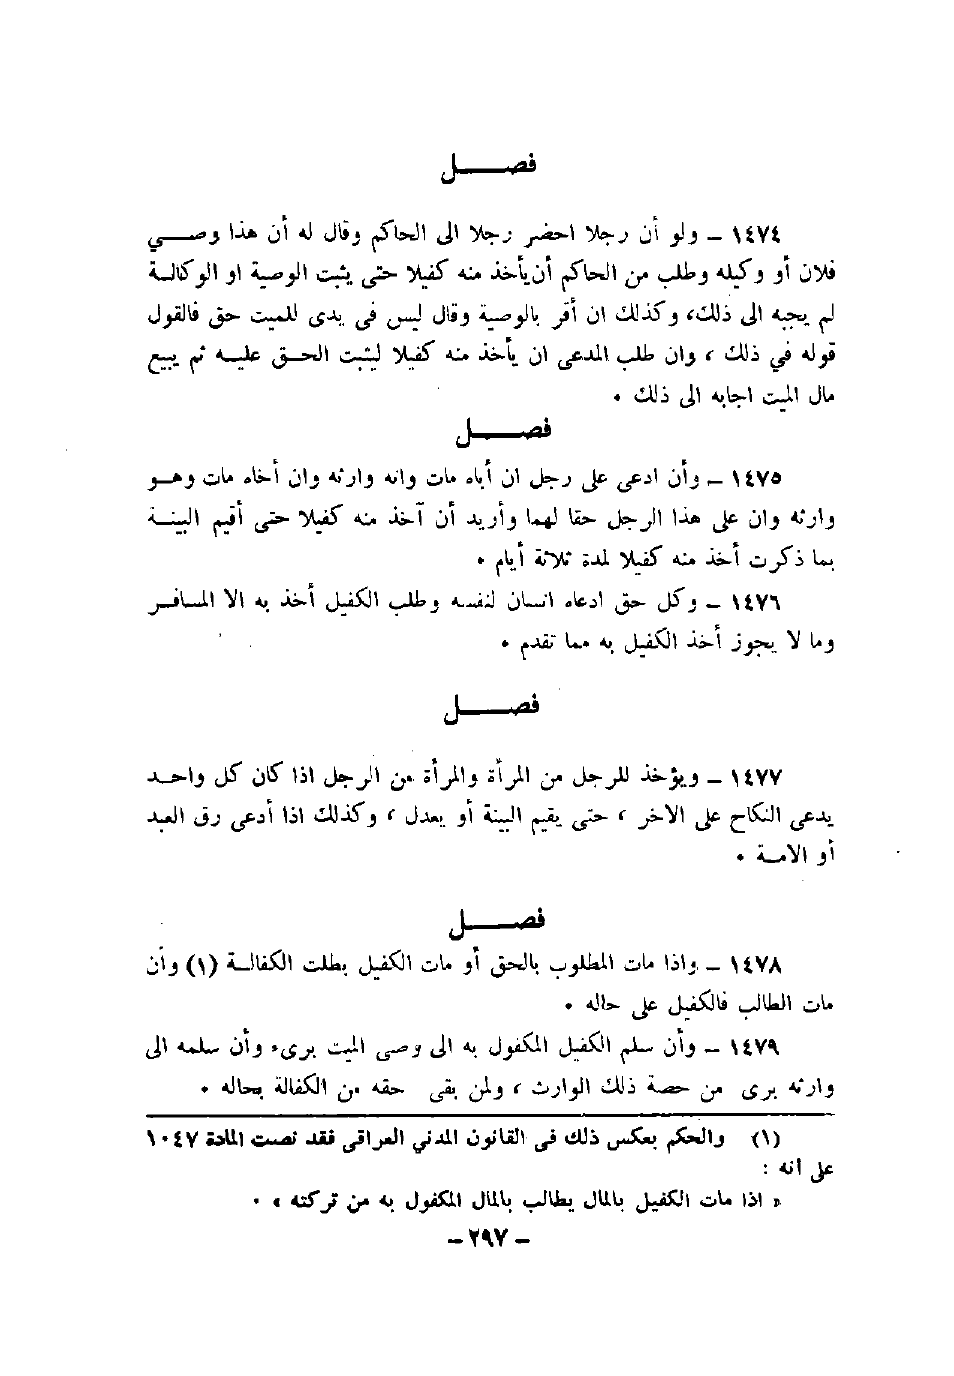 فصـــــل
١٤٧٤ ــ ولو أن رجلا احضر رجلا الى الحاكم وقال له أن هذا وصـــي
فلان أو وكيله وطلب من الحاكم أن يأخذ منه كفيلا حتى يثبت الوصية او الوكالـة
لم يجبه الى ذلك، وكذلك ان أقر بالوصية وقال ليس فى يدى للميت حق فالقول
قوله في ذلك ، وان طلب المدعى ان يأخذ منه كفيلا ليثبت الحـق عليـه ثم يبيع
مال الميت اجابه الى ذلك ٠
فصـــــل
١٤٧٥ ــ وأن ادعى على رجل ان أباه مات وانه وارثه وان أخاه مات وهـو
وارثه وان على هذا الرجل حقا لهما وأريد أن آخذ منه كفيلا حتى أقيم البينـة
بما ذكرت أخذ منه كفيلا لمدة ثلاثة أيام ٠
١٤٧٦ ــ وكل حق ادعاه انسان لنفسه وطلب الكفيل أخذ به الا المسافـر
وما لا يجوز أخذ الكفيل به مما تقدم ٠
فصـــــل
١٤٧٧ ــ ويؤخذ للرجل من المرأة والمرأة من الرجل اذا كان كل واحـد
يدعى النكاح على الاخر ، حتى يقيم البينة أو يعدل ، وكذلك اذا أدعى رق العبد
أو الامـة ٠
فصـــــل
١٤٧٨ ــ واذا مات المطلوب بالحق أو مات الكفيل بطلت الكفالـة (١) وأن
مات الطالب فالكفيل على حاله ٠
١٤٧٩ ــ وأن سلم الكفيل المكفول به الى وصى الميت برىء وأن سلمه الى
وارثه برى من حصة ذلك الوارث ، ولمن بقى حقه من الكفالة بحاله ٠
(١) والحكم بعكس ذلك فى القانون المدني العراقى فقد نصت المادة ١٠٤٧
على انه :
« اذا مات الكفيل بالمال يطالب بالمال المكفول به من تركته » ٠
ــ ٢٩٧ ــ